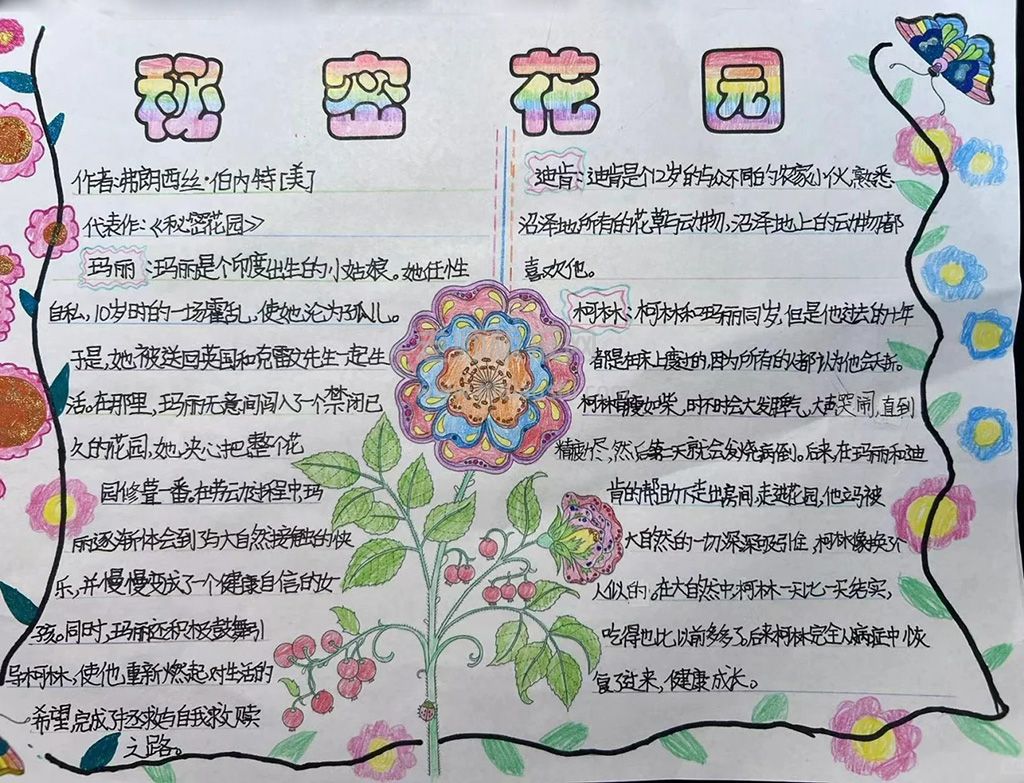 秘密花园
作者:弗朗西丝·伯内特[美]
代表作:《秘密花园》
玛丽:玛丽是个印度出生的小姑娘。她任性
自私,10岁时的一场霍乱,使她沦为孤儿。
于是,她被送回英国和克雷文先生一起生
活。在那里,玛丽无意间闯入了一个禁闭已
久的花园,她决心把整个花
园修葺一番。在劳动过程中玛
丽逐渐体会到了与大自然接触的快
乐,并慢慢变成了一个健康自信的女
孩。同时,玛丽还积极鼓舞引
导柯林,使他重新燃起对生活的
希望,完成了拯救与自我救赎
之路。
迪肯:迪肯是个12岁的与众不同的农家小伙,熟悉
沼泽地所有的花草与动物,沼泽地上的动物都
喜欢他。
柯林:柯林和玛丽同岁,但是他过去的十年
都是在床上度过的,因为所有的人都认为他会夭折。
柯林骨瘦如柴,时不时会大发脾气,大声哭闹,直到
精疲力尽,然后第二天就会发烧病倒。后来,在玛丽和迪
肯的帮助下走出房间,走进花园,他立马被
大自然的一切深深吸引住,柯林像换了个
人似的。在大自然中,柯林一天比一天结实,
吃得也比以前多多了,后来柯林完全从病症中恢
复了过来,健康成长。